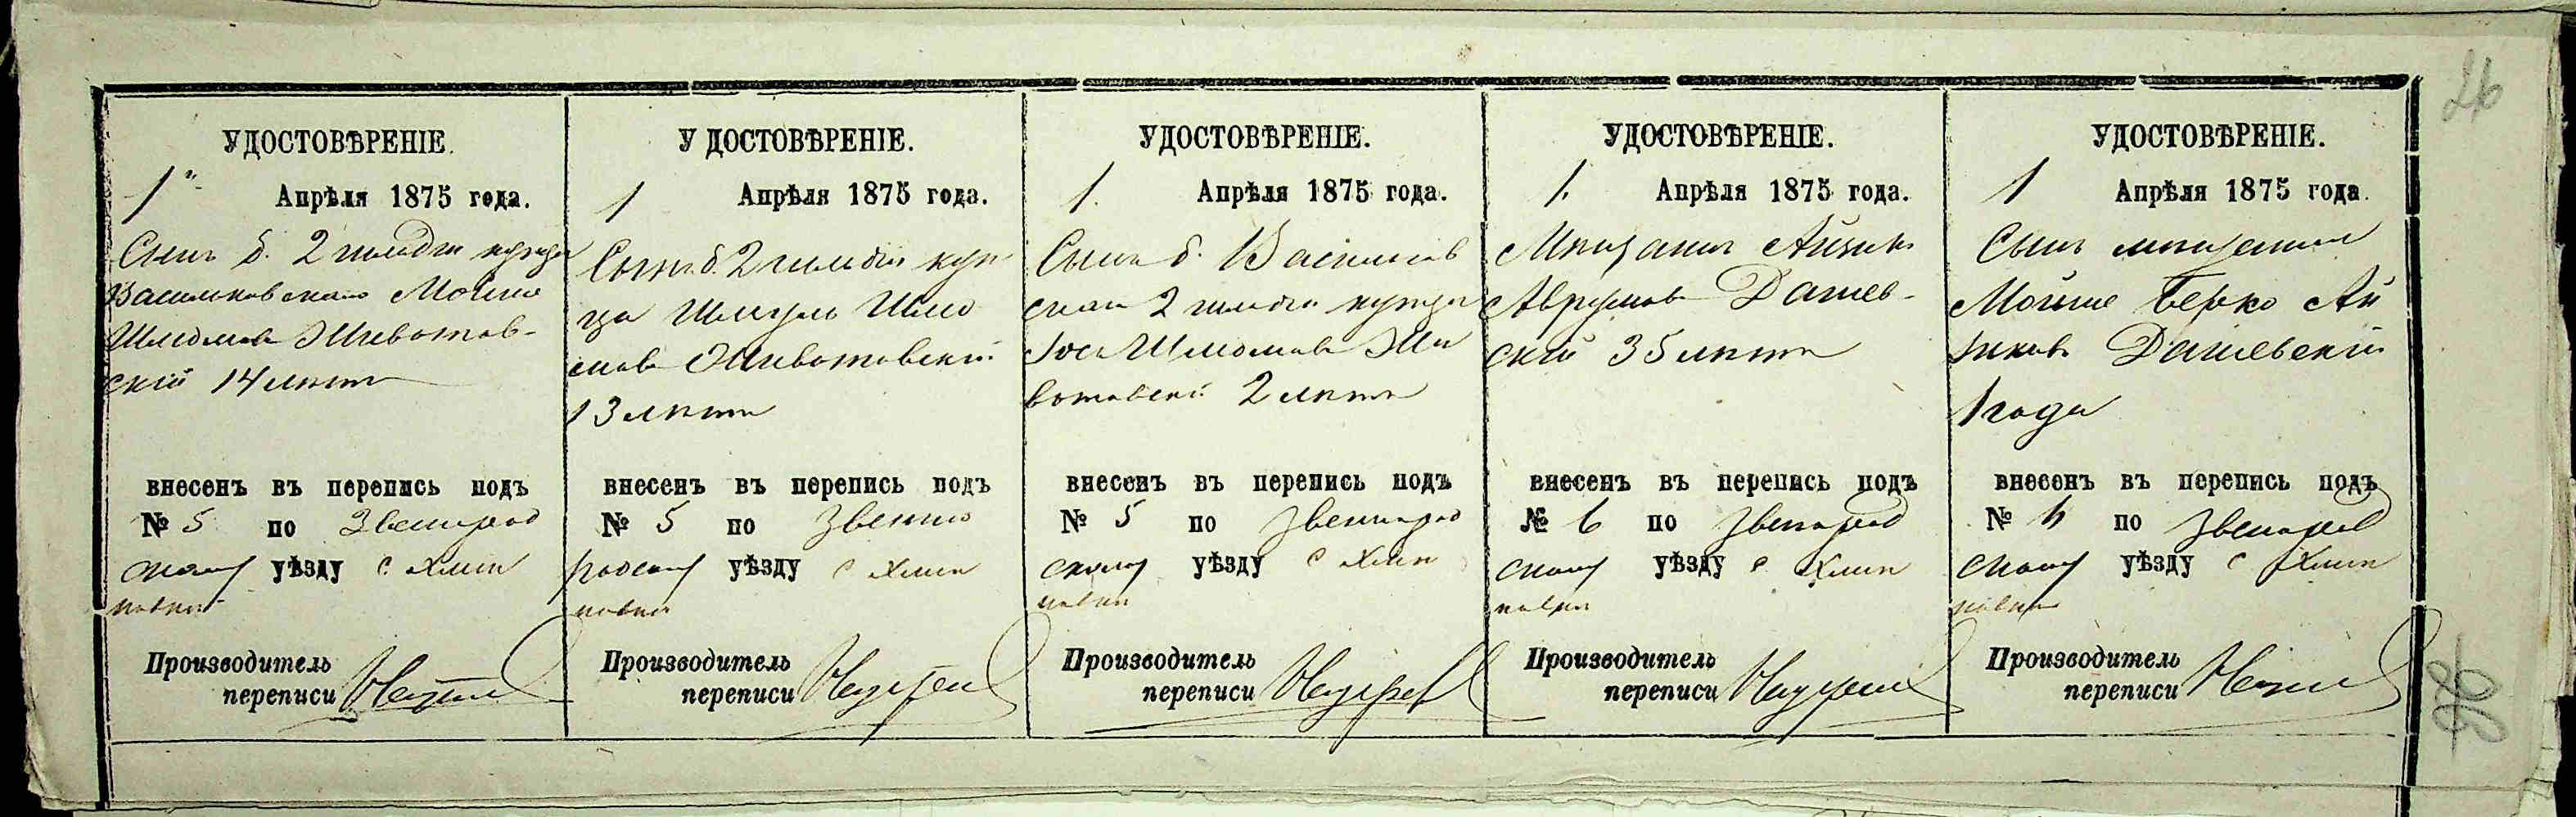 26
УДОСТОВѢРЕНІЕ.
1 Апрѣля 1875 года.
Сынъ б. 2 гильдіи купца
Васильковскаго Мойше
Шлиомовъ Животов-
скій 14 лѣтъ
внесенъ въ перепись подъ
№ 5 по Звенигород
скому уѣзду с. Хлип
новка
Производитель
переписи
УДОСТОВѢРЕНІЕ.
1 Апрѣля 1875 года.
Сынъ б. 2 гильдіи куп
ца Шмуль Шлио
мовъ Животовскій
13 лѣтъ
внесенъ въ перепись подъ
№ 5 по Звениго
родскому уѣзду с Хлип
новка
Производитель
переписи
УДОСТОВѢРЕНІЕ.
1. Апрѣля 1875 года.
Сынъ б. Васильков
скаго 2 гильдіи купца
Іось Шлиомовъ Жи
вотовскій 2 лѣтъ
внесенъ въ перепись подъ
№ 5 по Звенигород
скому уѣзду с Хлип
новка
Производитель
переписи
УДОСТОВѢРЕНІЕ.
1. Апрѣля 1875 года.
Мѣщанинъ Айзикъ
Аврумовъ Дашев-
скій 35 лѣтъ
внесенъ въ перепись подъ
№ 6 по Звенигород
скому уѣзду с. Хлип
новка
Производитель
переписи
УДОСТОВѢРЕНІЕ.
1 Апрѣля 1875 года.
Сынъ мѣщанина
Мойше Берко Ай
зиковъ Дашевскій
1 года
внесенъ въ перепись подъ
№ по Звенигород
скому уѣзду с Хлип
новка
Производитель
переписи